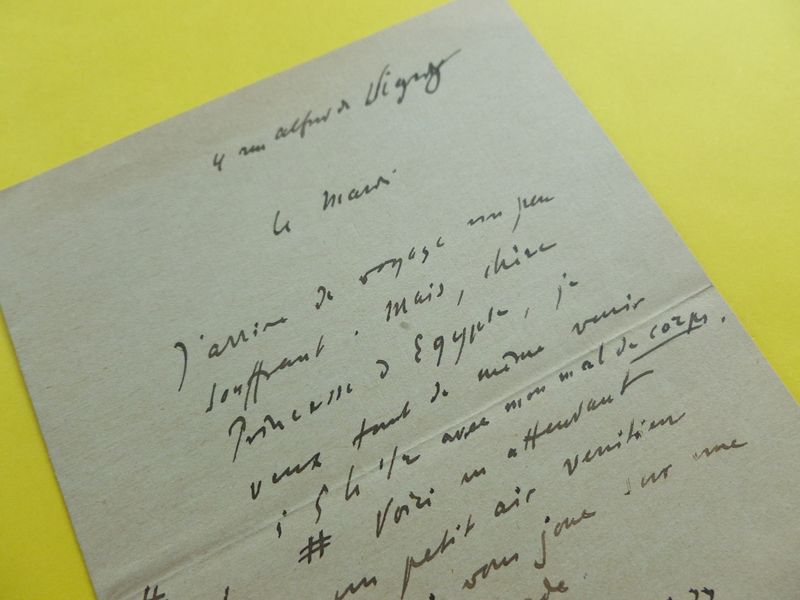 4 rue alfred de Vigny
le Mardi
J'arrive de voyage un peu
souffrant. Mais, chère
Princesse d'Egypte, je
veux tout de même venir
à 5 h 1/2 avec mon mal de corps.
# Voici en attendant
un petit air venitien
vous joue sur une
de